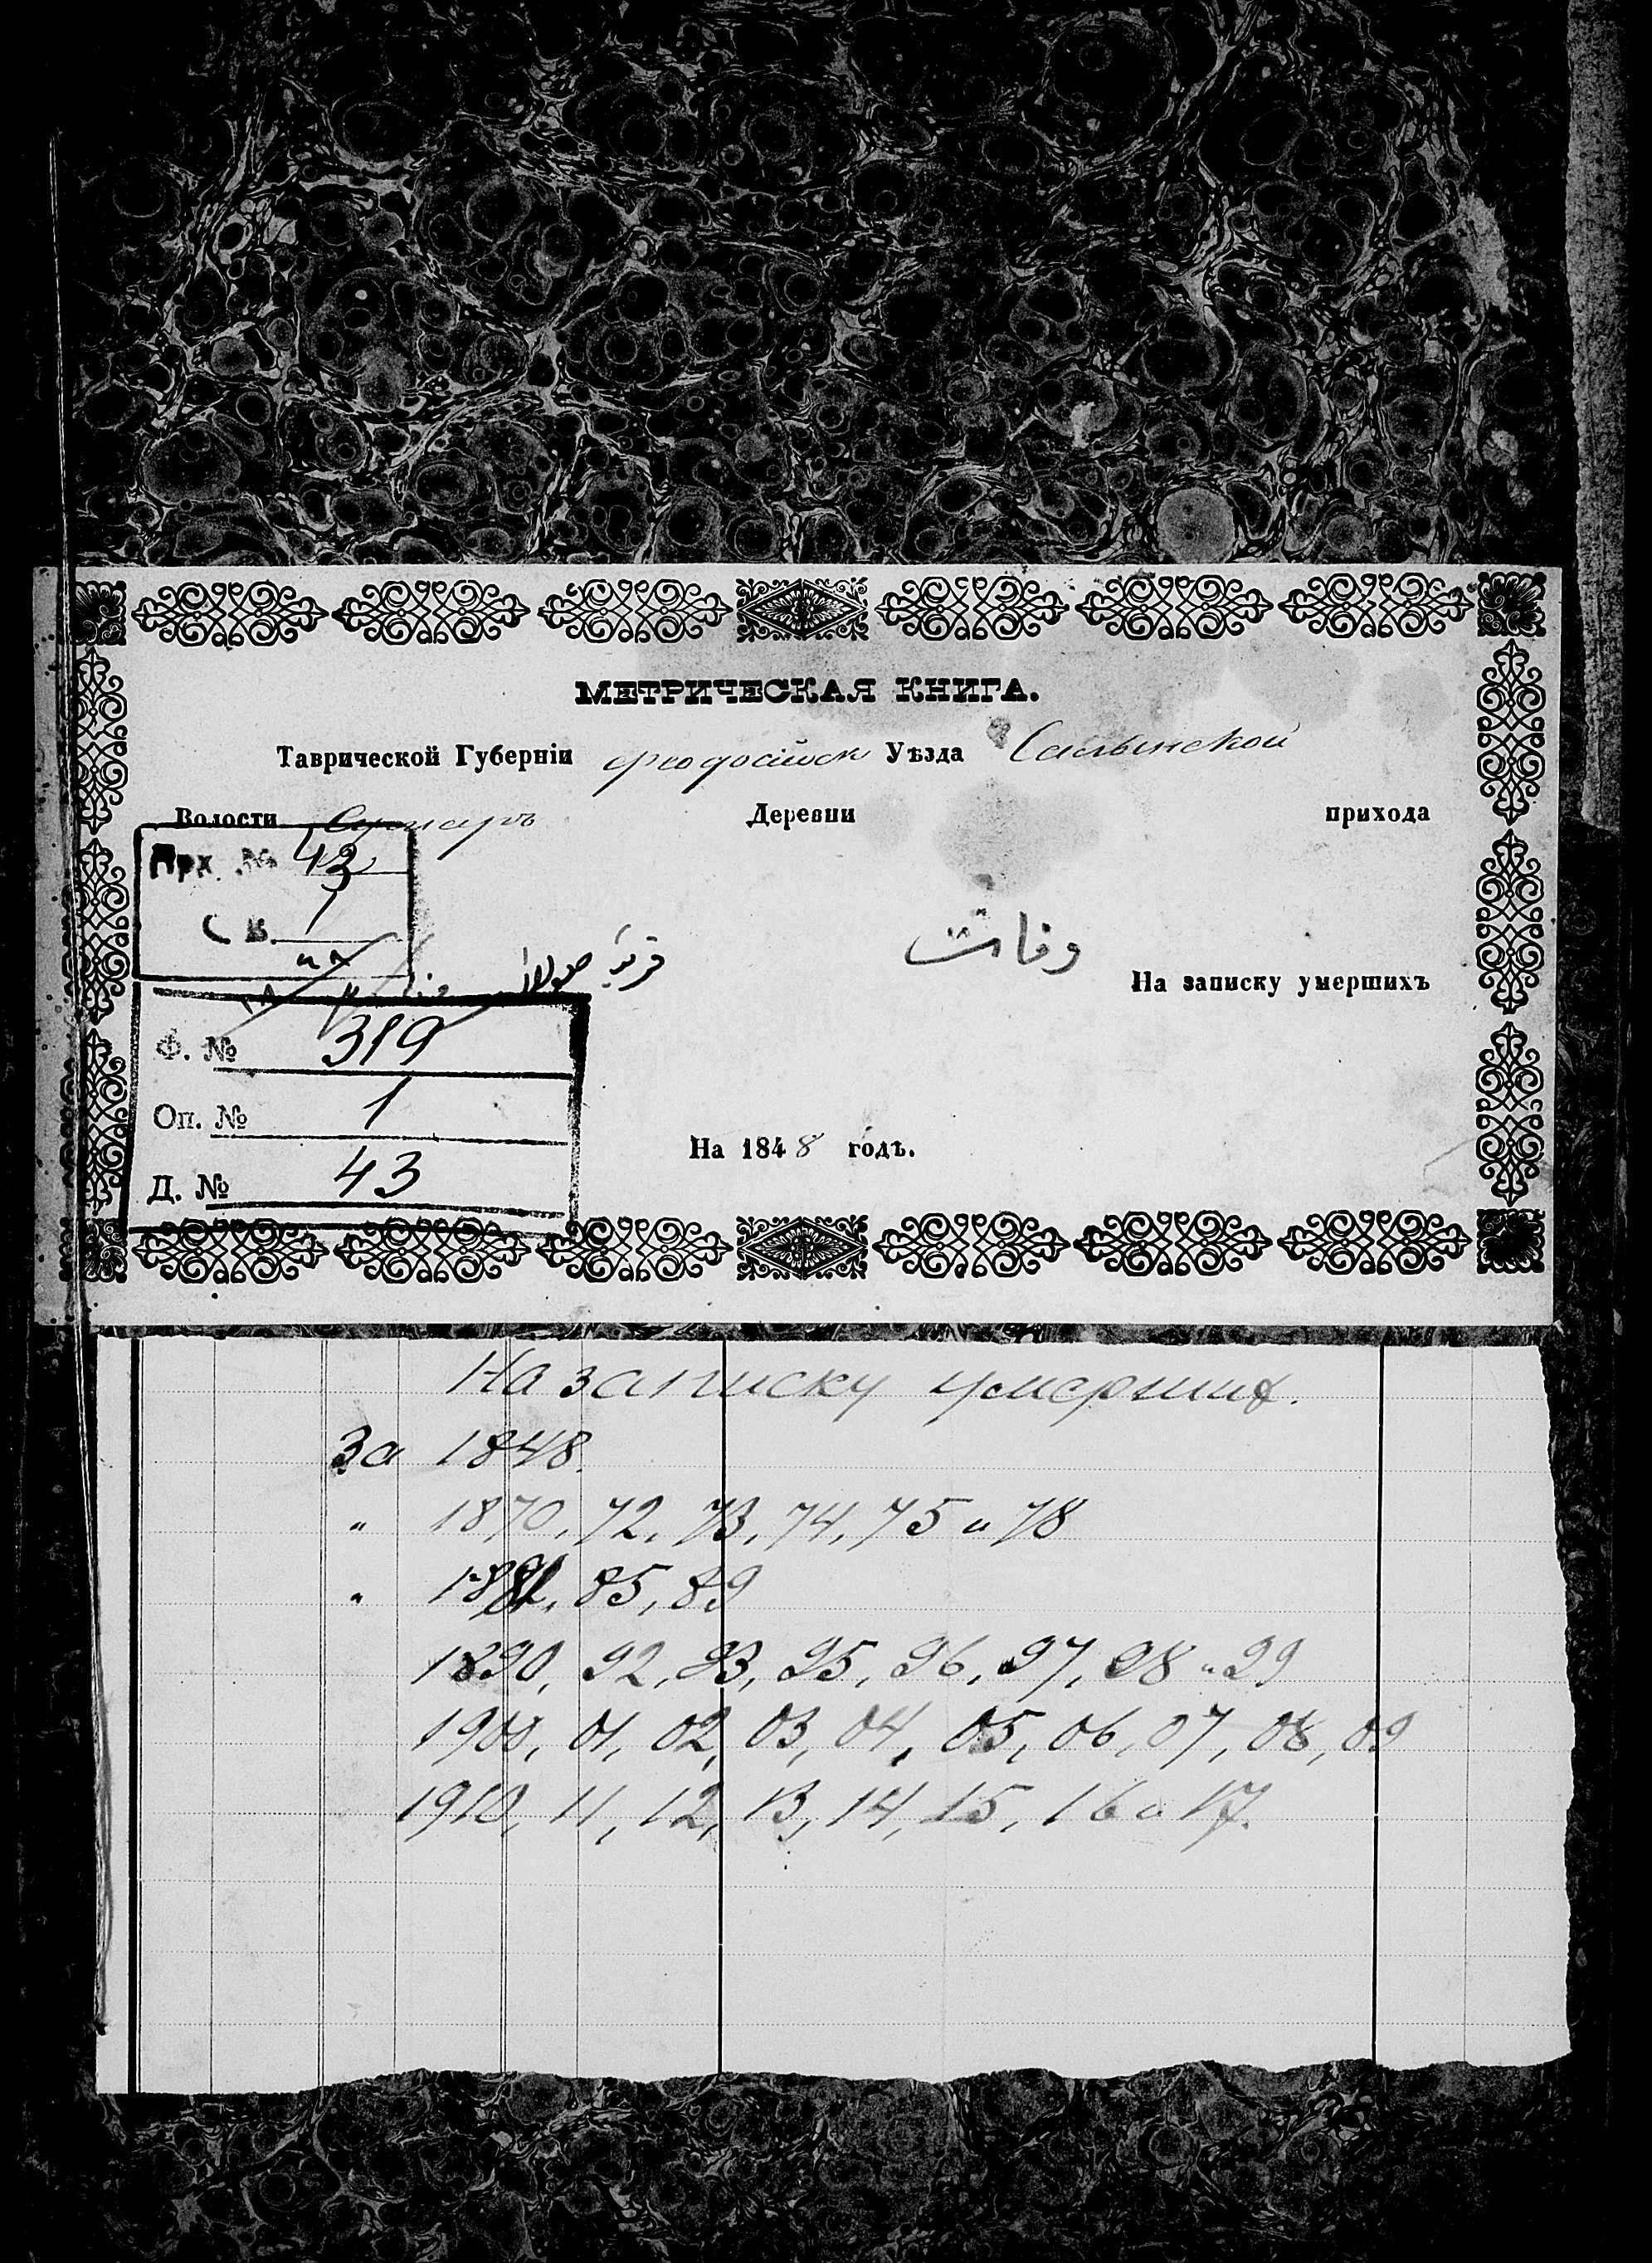 МЕТРИЧЕСКАЯ КНИГА.
Таврической Губерніи феодосійск Уѣзда Салынской
Волости Деревни прихода
Арх. № 43
Св. 1
وفات
قريۀ
На записку умершихъ
Ф. № 319
Оп. № 1
Д. № 43
На 1848 годъ.
На записку умерших.
За 1848.
" 1870, 72, 73, 74, 75 и 78
" 1881, 85, 89
1890, 92, 93, 95, 96, 97, 98 и 99
1900, 01, 02, 03, 04, 05, 06, 07, 08, 09
1910, 11, 12, 13, 14, 15, 16 и 17.